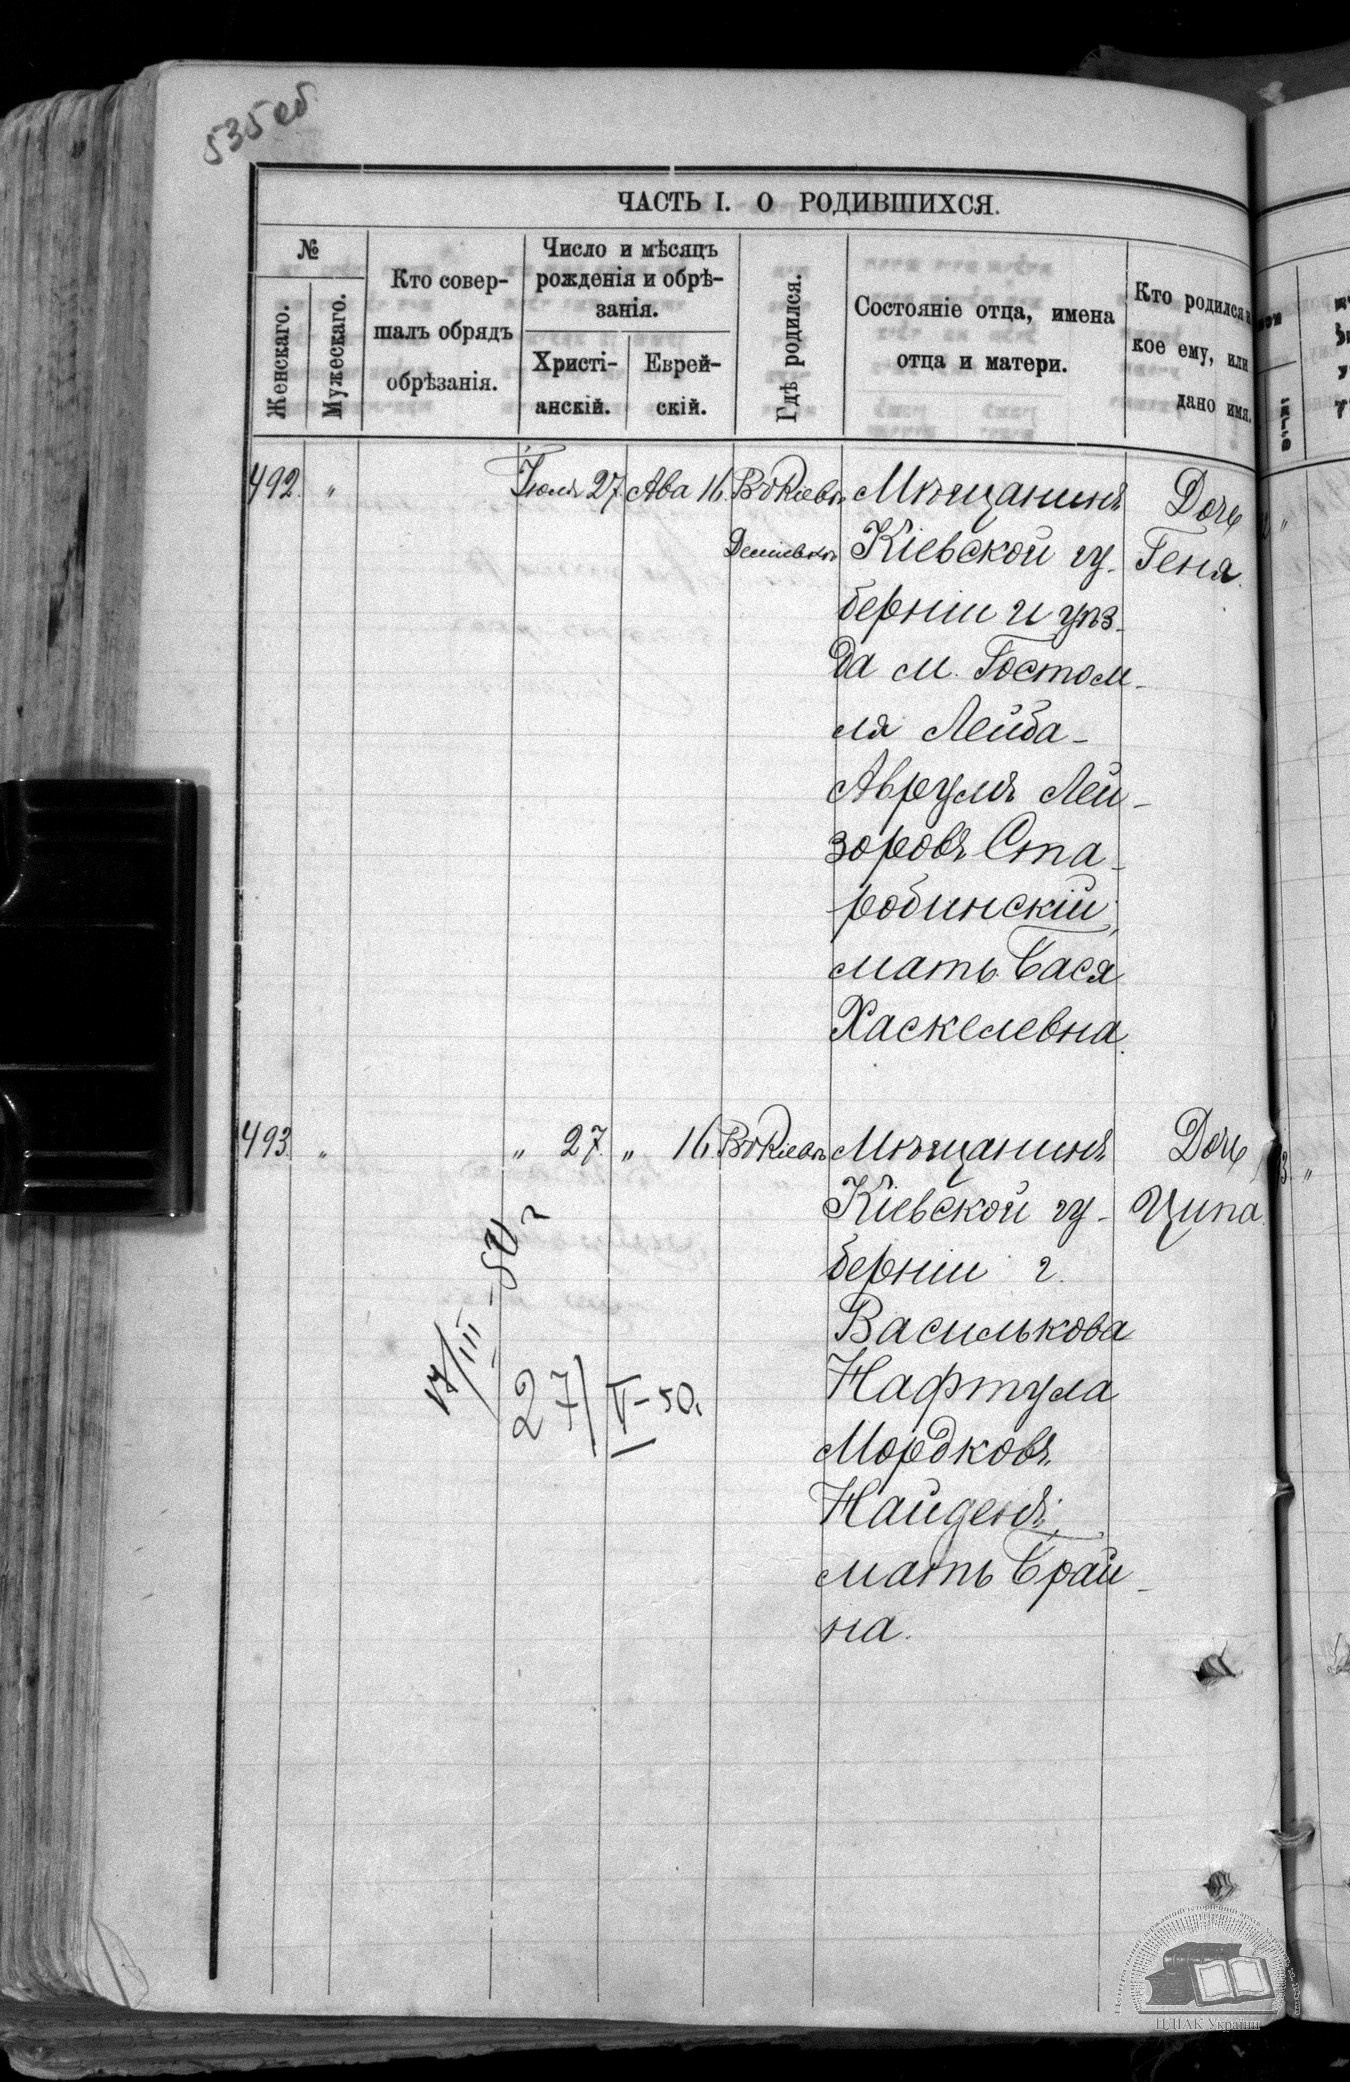 535 об
ЧАСТЬ I. О РОДИВШИХСЯ.
№
Женскаго.
Мужескаго.
Кто совер-
шалъ обрядъ
обрѣзанія.
Число и мѣсяцъ
рожденія и обрѣ-
занія.
Христі-
анскій.
Еврей-
скій.
Гдѣ родился.
Состояніе отца, имена
отца и матери.
Кто родился и
кое ему, или
дано имя.
492. " Іюля 27. Ава 16. Въ Кіевѣ Мѣщанинъ Дочь
Кіевской гу- Геня.
берніи и уѣз-
да м. Гостом-
ля Лейба-
Аврумъ Лей-
зоровъ Ста-
робинскій,
мать Бася
Хаскелевна.
493. " " 27. " 16. Въ Кіевѣ Мѣщанинъ Дочь
Кіевской гу- Ципа.
берніи г.
Василькова
Нафтула
Мордковъ
Найденъ,
мать Брай-
на.
17/III-50 г
27/V-50.
ЦДІАК України